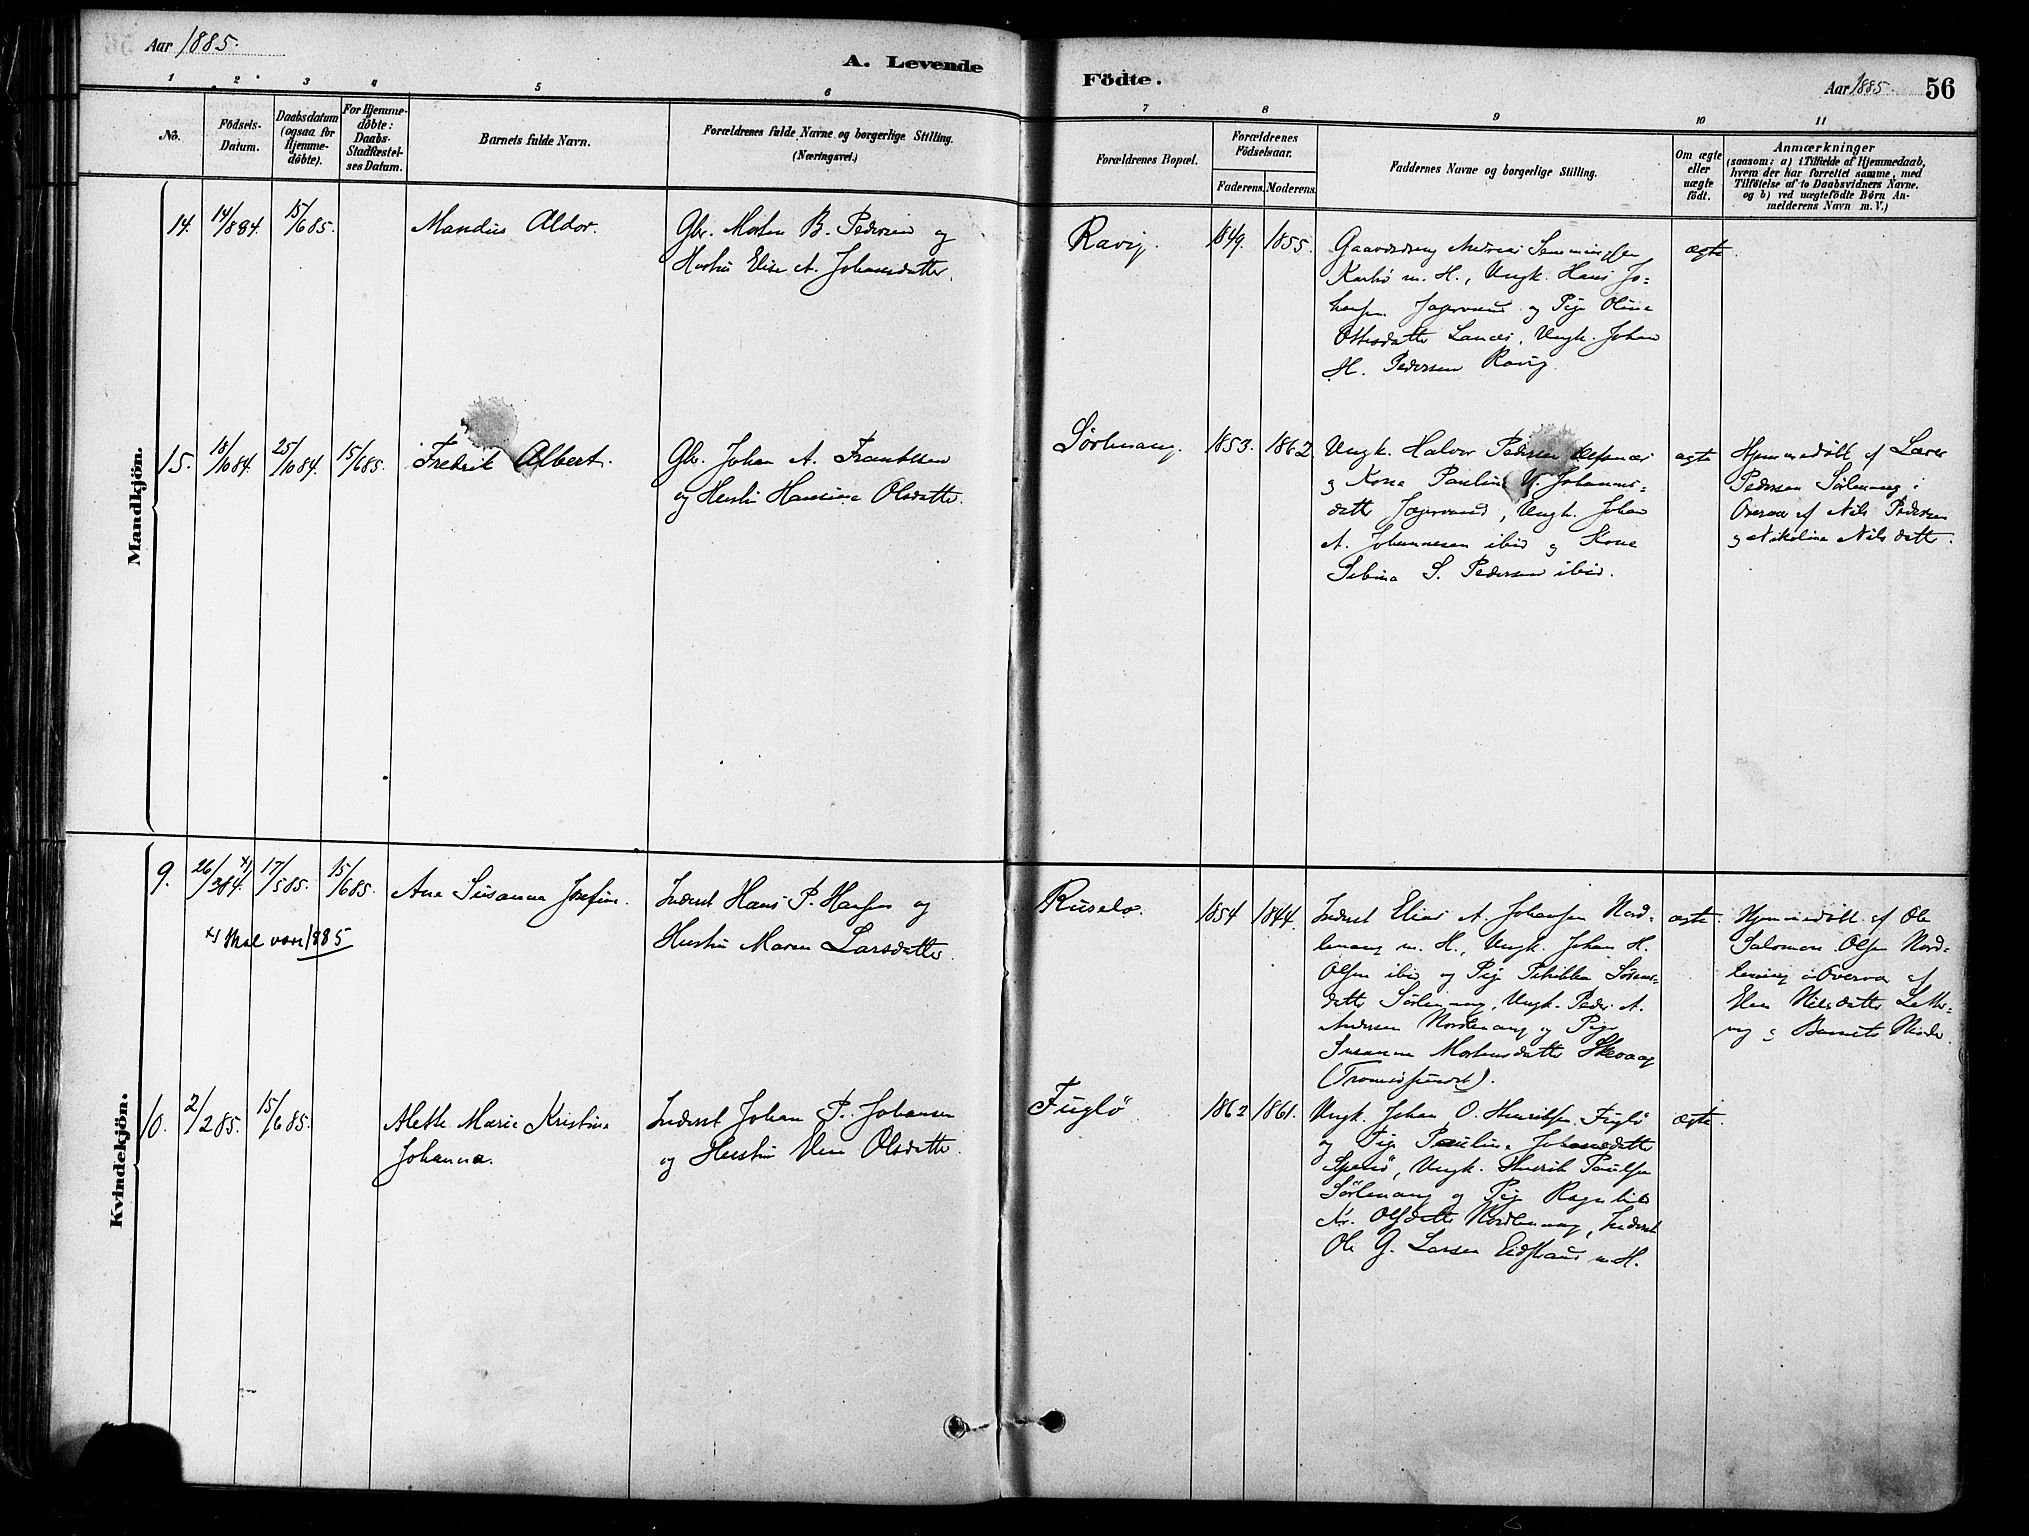 Aar 1885.
A. Levende
Födte.
Aar 1885.
56
1 2 3 4 5 6
7 8 9 10 11
No.
Födsels-
Datum.
Daabsdatum
(ogsaa for
Hjemme-
döbte).
For Hjemme-
döbte:
Daabs-
Stadfæstel-
ses Datum.
Barnets fulde Navn.
Forældrenes fulde Navne og borgerlige Stilling.
(Næringsvei.)
Forældrenes Bopæl.
Forældrenes
Födselsaar.
Faderens. Moderens.
Faddernes Navne og borgerlige Stilling.
Om ægte
eller
uægte
födt.
Anmærkninger
(saasom: a) i Tilfælde af Hjemmedaab,
hvem der har forrettet samme, med
Tilföielse af to Daabsvidners Navne.
og b) ved uægtefödte Börn An-
melderens Navn m. V.)
Mandkjön.
14. 14/8 84. 15/6 85.
Mandius Aldor.
Gbr. Morten B. Pedersen og
Hustru Elise A. Johansdatter.
Ravig.
1849. 1855.
Gaardsdreng Andreas Semmingsen
Karlsö m. H., Ungk. Hans Jo-
hansen Jægervand og Pige Oline
Ottesdatter Lanæs, Ungk. Johan
H. Pedersen Ravig.
ægte.
15. 18/10 84. 25/10 84. 15/6 85.
Fredrik Albert.
Gbr. Johan A. Frantsen
og Hustru Hansine Olsdatter.
Sörlenang.
1853. 1862.
Ungk. Halvor Pedersen
og Kone Pauline Johannes-
datter Jægervand, Ungk. Johan
A. Johannesen ibid og Kone
S. Pedersen ibid.
ægte
Hjemmedöbt af Lærer
Pedersen Sörlenang i
Overvær af Nils Pedersen
og Nikoline Nilsdatter.
Kvindekjön.
9. 26/2 84. x) 17/5 85. 15/6 85.
x) skal være 1885
Ane Susanna Josefine.
Inderst Hans P. Hansen og
Hustru Maren Larsdatter.
Ruselv.
1854 1844.
Inderst Elias A. Johansen Nord-
lenang m. H., Ungk. Johan H.
Olsen ibid og Pige Sörens-
datter Sörlenang, Ungk. Peder A.
Andersen Nordlenang og Pige
Susanne Mortensdatter
(Tromsösundet).
ægte.
Hjemmedöbt af Ole
Salomon Olsen Nord-
lenang i Overvær af
Elen Nilsdatter
og Barnets Moder.
10. 2/2 85. 15/6 85.
Alette Marie Kristine
Johanna.
Inderst Johan P. Johansen
og Hustru Olsdatter.
Fuglö
1862 1861.
Ungk. Johan O. Henriksen Fuglö
og Pige Pauline Johansdatter
Ungk. Henrik Paulsen
Sörlenang og Pige Ragnhild
Kr. Olsdatter Nordlenang, Inderst
Ole G. Larsen Eidstrand m H.
ægte.